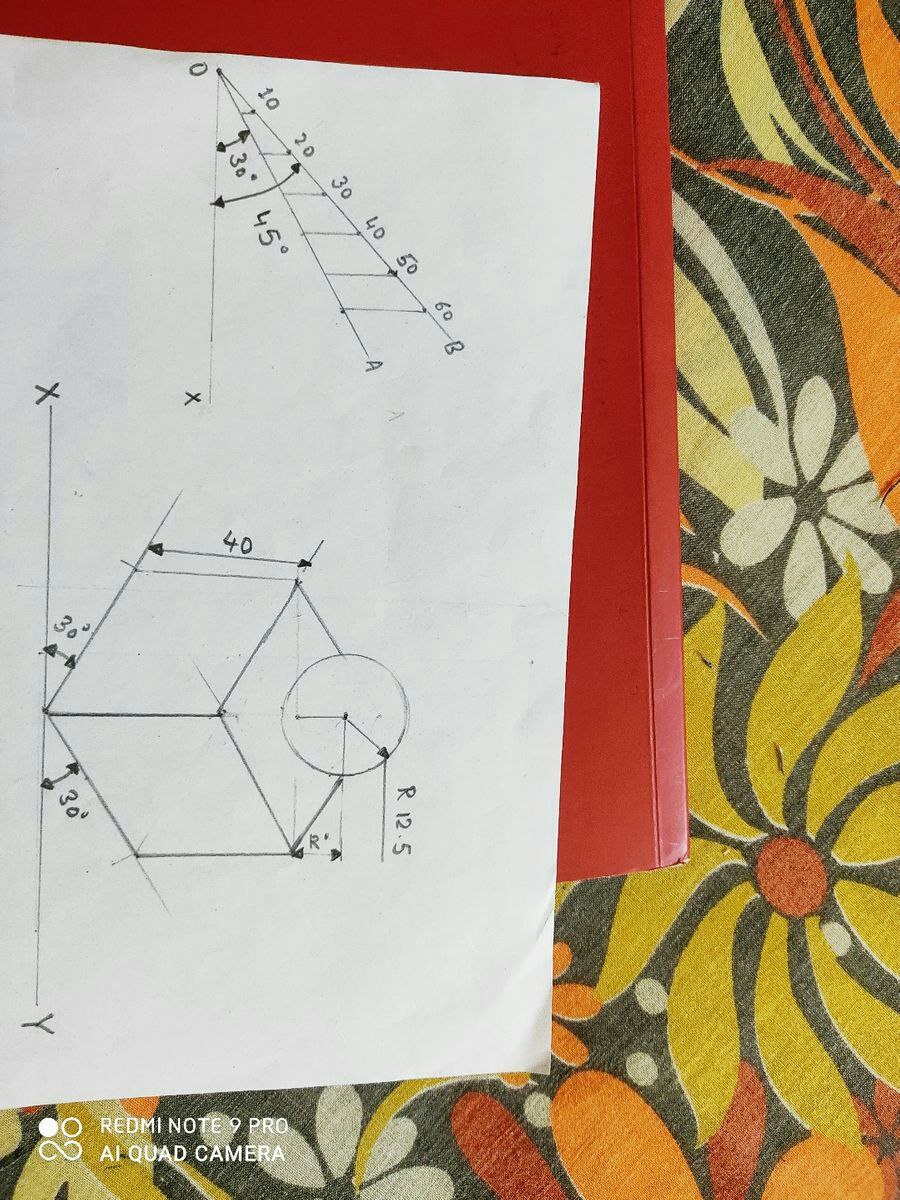 O
10
20
30
40
50
60
B
A
30°
45°
X
X
40
30°
30°
R 12.5
R'
Y
REDMI NOTE 9 PRO
AI QUAD CAMERA